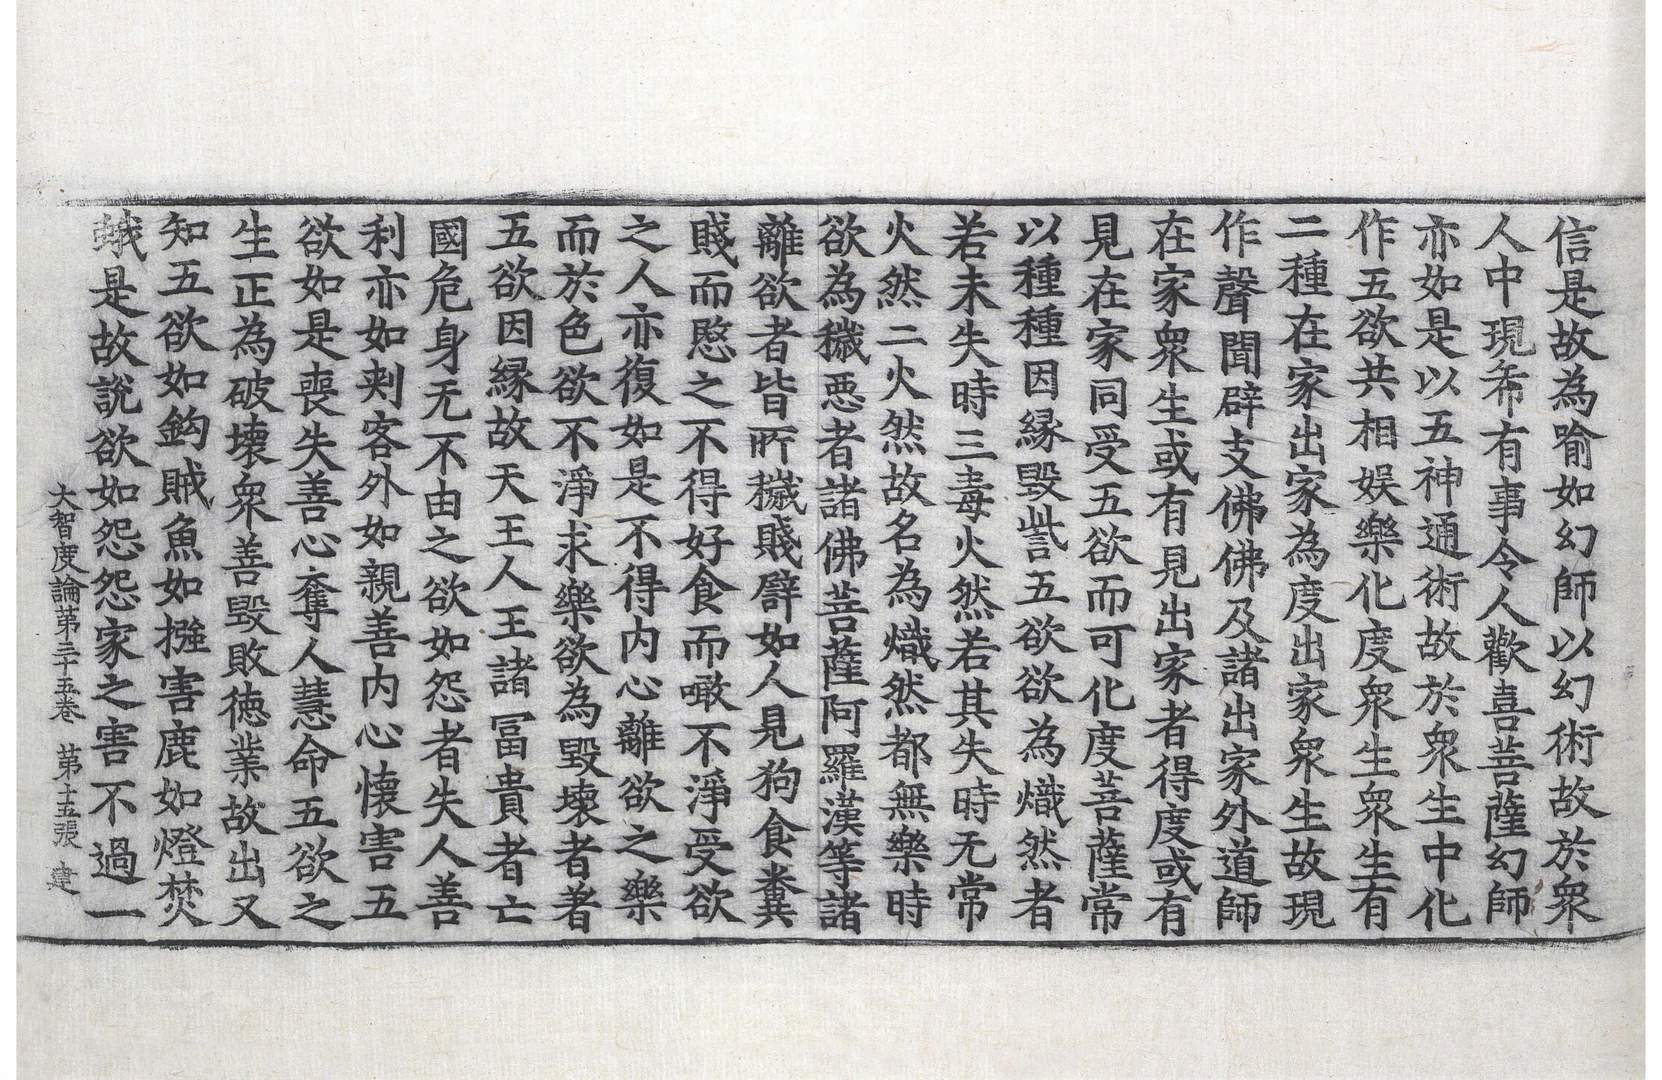 信是故為喻如幻師以幻術故於衆
人中現希有事令人歡喜菩薩幻師
亦如是以五神通術故於衆生中化
作五欲共相娛樂化度衆生衆生有
二種在家出家為度出家衆生故現
作聲聞辟支佛佛及諸出家外道師
在家衆生或有見出家者得度或有
見在家同受五欲而可化度菩薩常
以種種因緣毀呰五欲欲為熾然者
若未失時三毒火然若其失時无常
火然二火然故名為熾然都無樂時
欲為穢惡者諸佛菩薩阿羅漢等諸
離欲者皆所穢賤譬如人見狗食糞
賤而愍之不得好食而噉不淨受欲
之人亦復如是不得內心離欲之樂
而於色欲不淨求樂欲為毀壞者著
五欲因緣故天王人王諸冨貴者亡
國危身无不由之欲如怨者失人善
利亦如刾客外如親善內心懷害五
欲如是喪失善心奪人慧命五欲之
生正為破壞衆善毀敗德業故出又
知五欲如鈎賊魚如㨾害鹿如燈焚
蛾是故說欲如怨怨家之害不過一
大智度論第三十五卷　第十五張　建